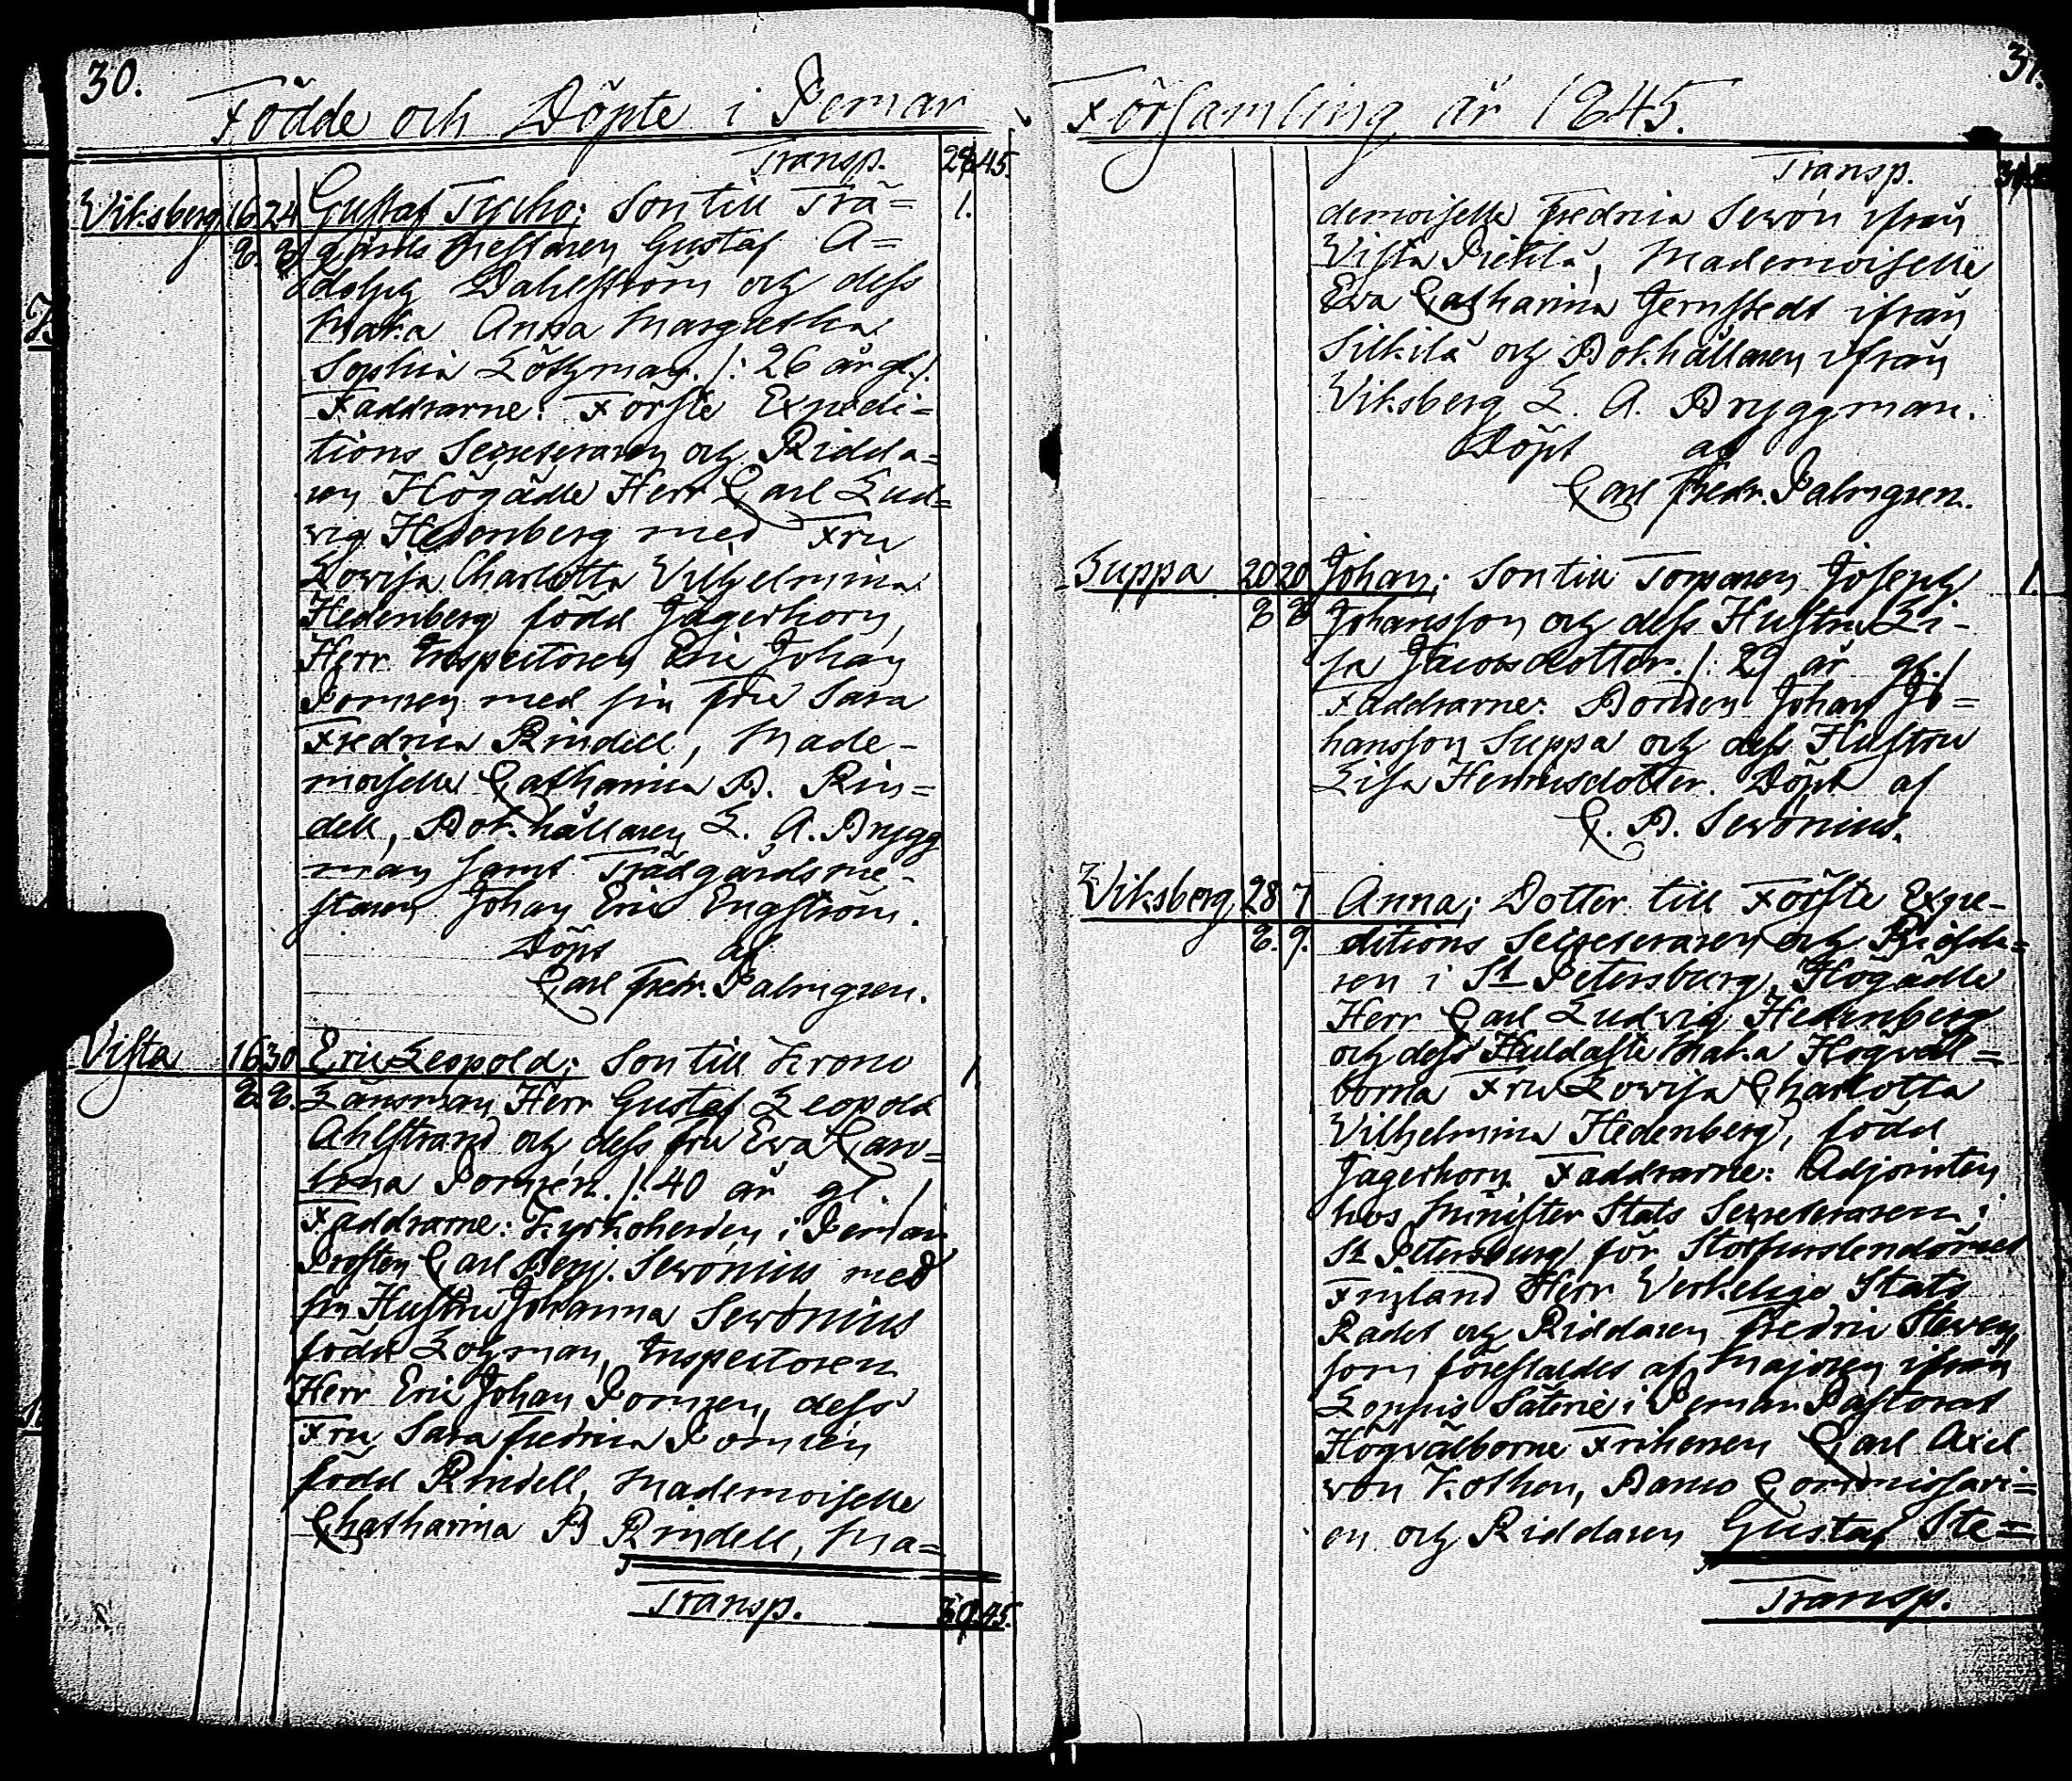 30.
Födde och Döpte i Pemar
Transp. 29. 45.
Viksberg 16. 24. Gustaf Tycho; Son till Trä= 1.
8. 8. gårds mestaren Gustaf A=
dolph Dahlström och dess
Maka Anna Margretha
Sophia Löthman. /: 26 år gl. /
Faddrarne: Förste Expedi=
tions Secreteraren och Ridda=
ren Högädle Herr Carl Lud=
vig Hedenberg med Fru
Lovisa Charlotta Vilhelmina
Hedenberg född Jägerhorn,
Herr Inspectoren Eric Johan
Pomren med sin fru Sara
Fredrica Rindell, Made-
moiselle Catharina B. Rin=
dell, Bok.hållaren L. A. Brygg
man samt Trädgårdsme-
staren Johan Eric Engström.
Döpt af
Carl Fredr. Palmgren.
Vista 16 30 Eric Leopold; Son till Krono 1.
8. 8. Länsman Herr Gustaf Leopold
Ahlstrand och dess fru Eva Caro=
lina Pomrén. /: 40 år gl. /
Faddrarne: Kyrkoherden i Pemar
Prosten Carl Benj. Seronius med
sin Hustru Johanna Seronius
född Lohman, Inspectoren
Herr Eric Johan Pomren, dess
Fru Sara Fredrica Pomrén
född Rindell, Mademoiselle
Chatharina B Rindell, Ma=
Transp. 45.
31.
Församling år 1845.
Transp.
demoiselle Fredrica Serón ifrån
Vista Pietilä, Mademoiselle
Eva Catharina Jernstedt ifrån
Silkilä och Bokhållaren ifrån
Viksberg L. A. Bryggman.
Döpt af
Carl Fredr. Palmgren.
Suppa 20 20 Johan; Son till Torparen Joseph 1.
8 8 Johansson och dess Hustru Li-
sa Jacobsdotter. /: 29 år gl. /
Faddrarne: Bonden Johan Jo=
hansson Suppa och dess Hustru
Lisa Henricsdotter. Döpt af
C. B. Seronius.
Viksberg 28 7 Anna; Dotter till Förste Expe-
8. 9. ditions Secreteraren och Ridda=
ren i St Petersburg, Högädle
Herr Carl Ludvig Hedenberg
och dess Huldaste Maka Högväl=
borna Fru Lovisa Charlotta
Vilhelmina Hedenberg, född
Jägerhorn. Faddrarne: Adjointen
hos Minister Stats Secreteraren i
St Petersburg för Storfurstendömet
Finland Herr Verkelige Stats
Rådet och Riddaren Fredric Steven,
som föreställdes af Majoren ifrån
Loppis Säterie i Pemar Pastorat
Högvälborne Friherren Carl Axel
von Kothen, Banco Commissari=
en och Riddaren Gustaf Ste=
Transp.